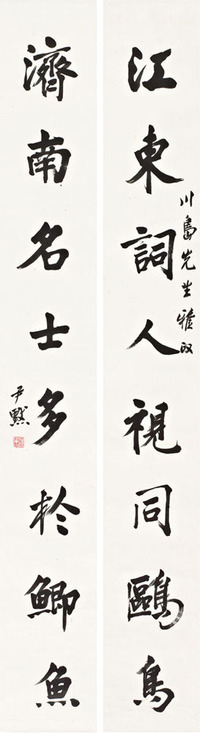 江東詞人視同鷗鳥
川島先生雅政
濟南名士多於鯽魚
尹默